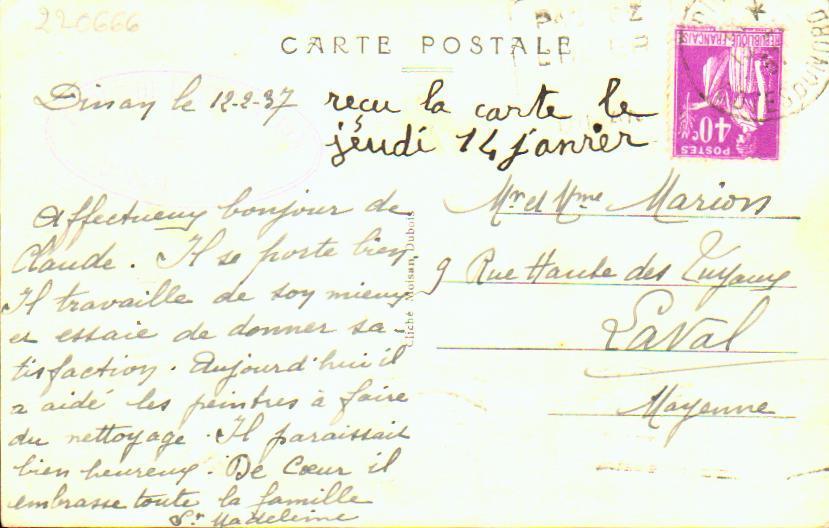 220666
CARTE POSTALE
Dinan le 12-2-37
reçu la carte le
jeudi 14 janvier
REPUBLIQUE FRANÇAISE
40c
POSTES
Affectueux bonjour de
Claude. Il se porte bien
Il travaille de son mieux
et essaie de donner sa-
tisfaction. Aujourd'hui il
a aidé les peintres à faire
du nettoyage. Il paraissait
bien heureux. De Cœur il
embrasse toute la famille
Sr Madeleine
Cliché Moisan, Dubois
Mr et Mme Marion
9 Rue Haute des Tuyaux
Laval
Mayenne